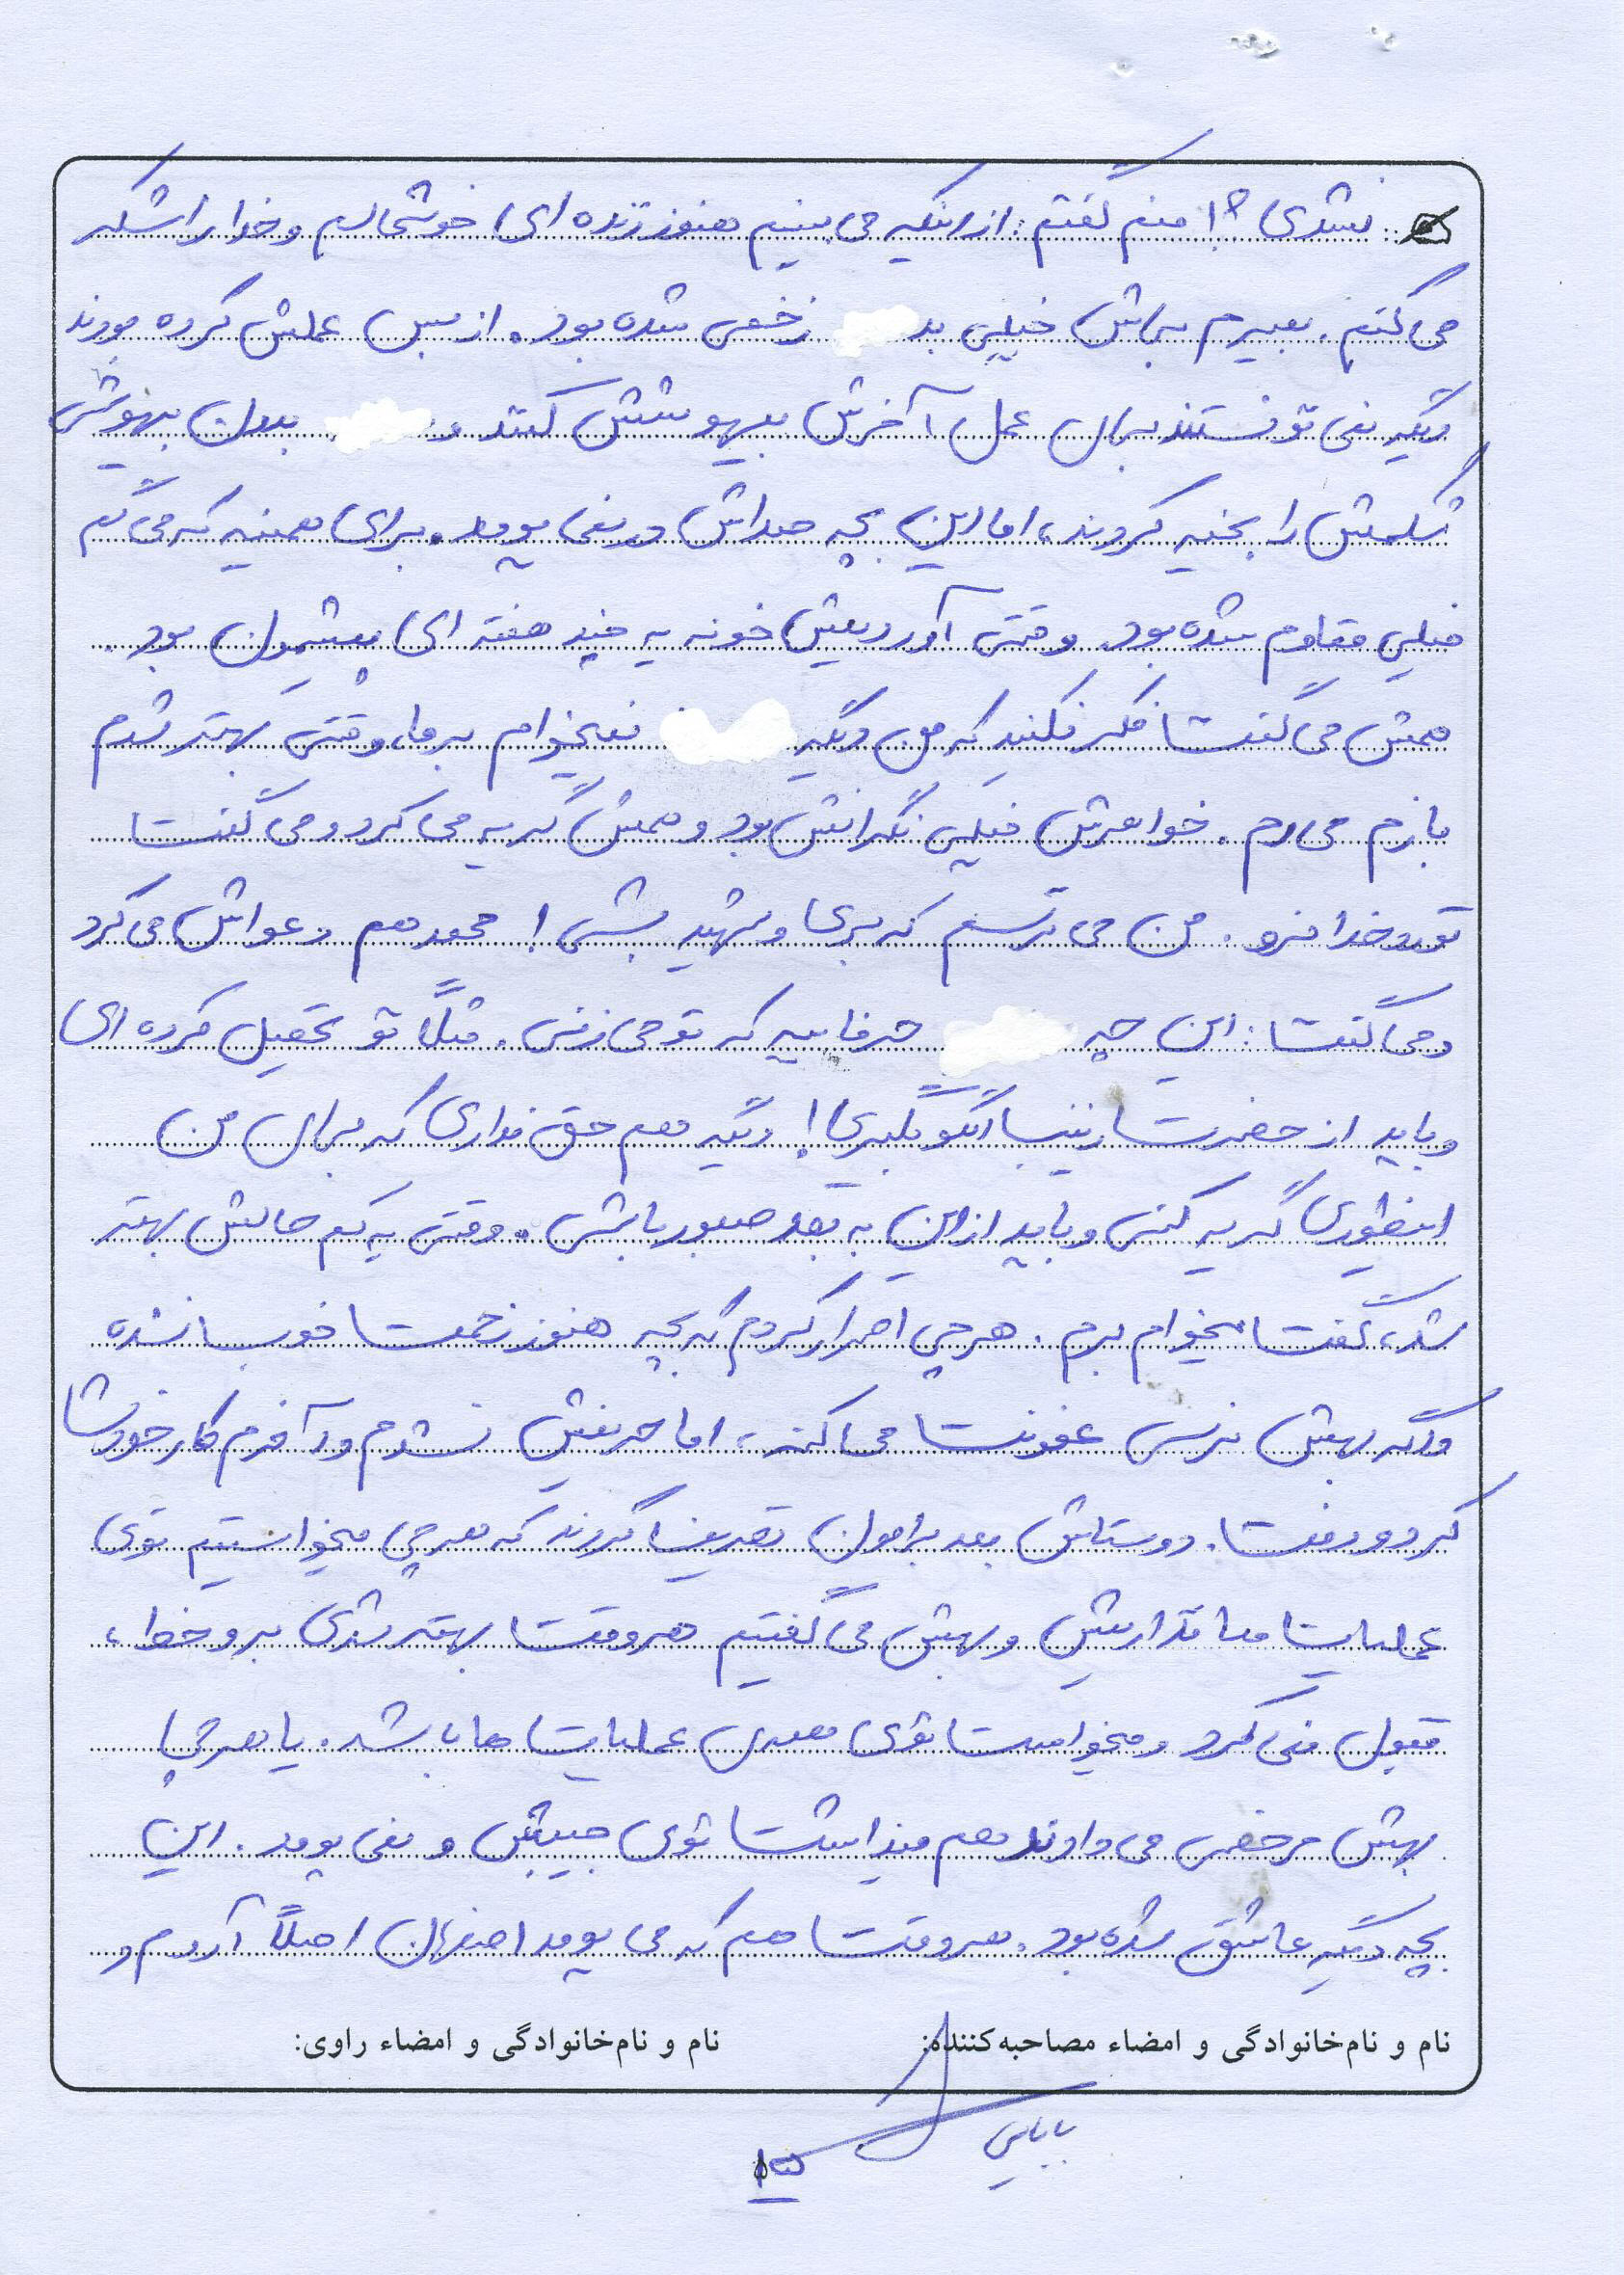 نشدی؟! منم گفتم: از اینکه می بینیم هنوز زنده ای خوشحالیم و خدا را شکر
می کنم. بمیرم براش خیلی بد زخمی شده بود. از بس عملش کرده بودند
دیگه نمی تونستند برای عمل آخرش بیهوشش کنند و بدون بیهوشی
شکمش را بخیه کردند، اما این بچه صداش در نمی یومد. برای همینه که می گم
خیلی مقاوم شده بود. وقتی آوردیمش خونه یه چند هفته ای پیشمون بود.
همش می گفت فکر نکنید که من دیگه نمیخوام برما، وقتی بهتر شدم
بازم می رم. خواهرش خیلی نگرانش بود و همش گریه می کرد و می گفت
تو رو خدا نرو. من می ترسم که بری و شهید بشی! محمد هم دعواش می کرد
و می گفت: این چه حرفاییه که تو می زنی. مثلاً تو تحصیل کرده ای
و باید از حضرت زینب الگو بگیری! دیگه هم حق نداری که برای من
اینطوری گریه کنی و باید از این به بعد صبور باشی. وقتی یه کم حالش بهتر
شد، گفت میخوام برم. هرچی اصرار کردم که بچه هنوز زخمت خوب نشده
و اگه بهش نرسی عفونت می کنه، اما حریفش نشدم و آخرم کار خودش
کرد و رفت. دوستاش بعد برامون تعریف کردند که هرچی میخواستیم توی
عملیات ها نذاریمش و بهش می گفتیم هر وقت بهتر شدی برو خط،
قبول نمی کرد و میخواست توی همه ی عملیات ها باشد. یا هرچی
بهش مرخصی می دادند هم میذاشت توی جیبش و نمی یومد. این
بچه دیگه عاشق شده بود. هر وقت هم که می یومد اصفهان اصلاً آروم و
نام و نام‌خانوادگی و امضاء مصاحبه‌کننده: نام و نام‌خانوادگی و امضاء راوی:
بابایی
۱۵